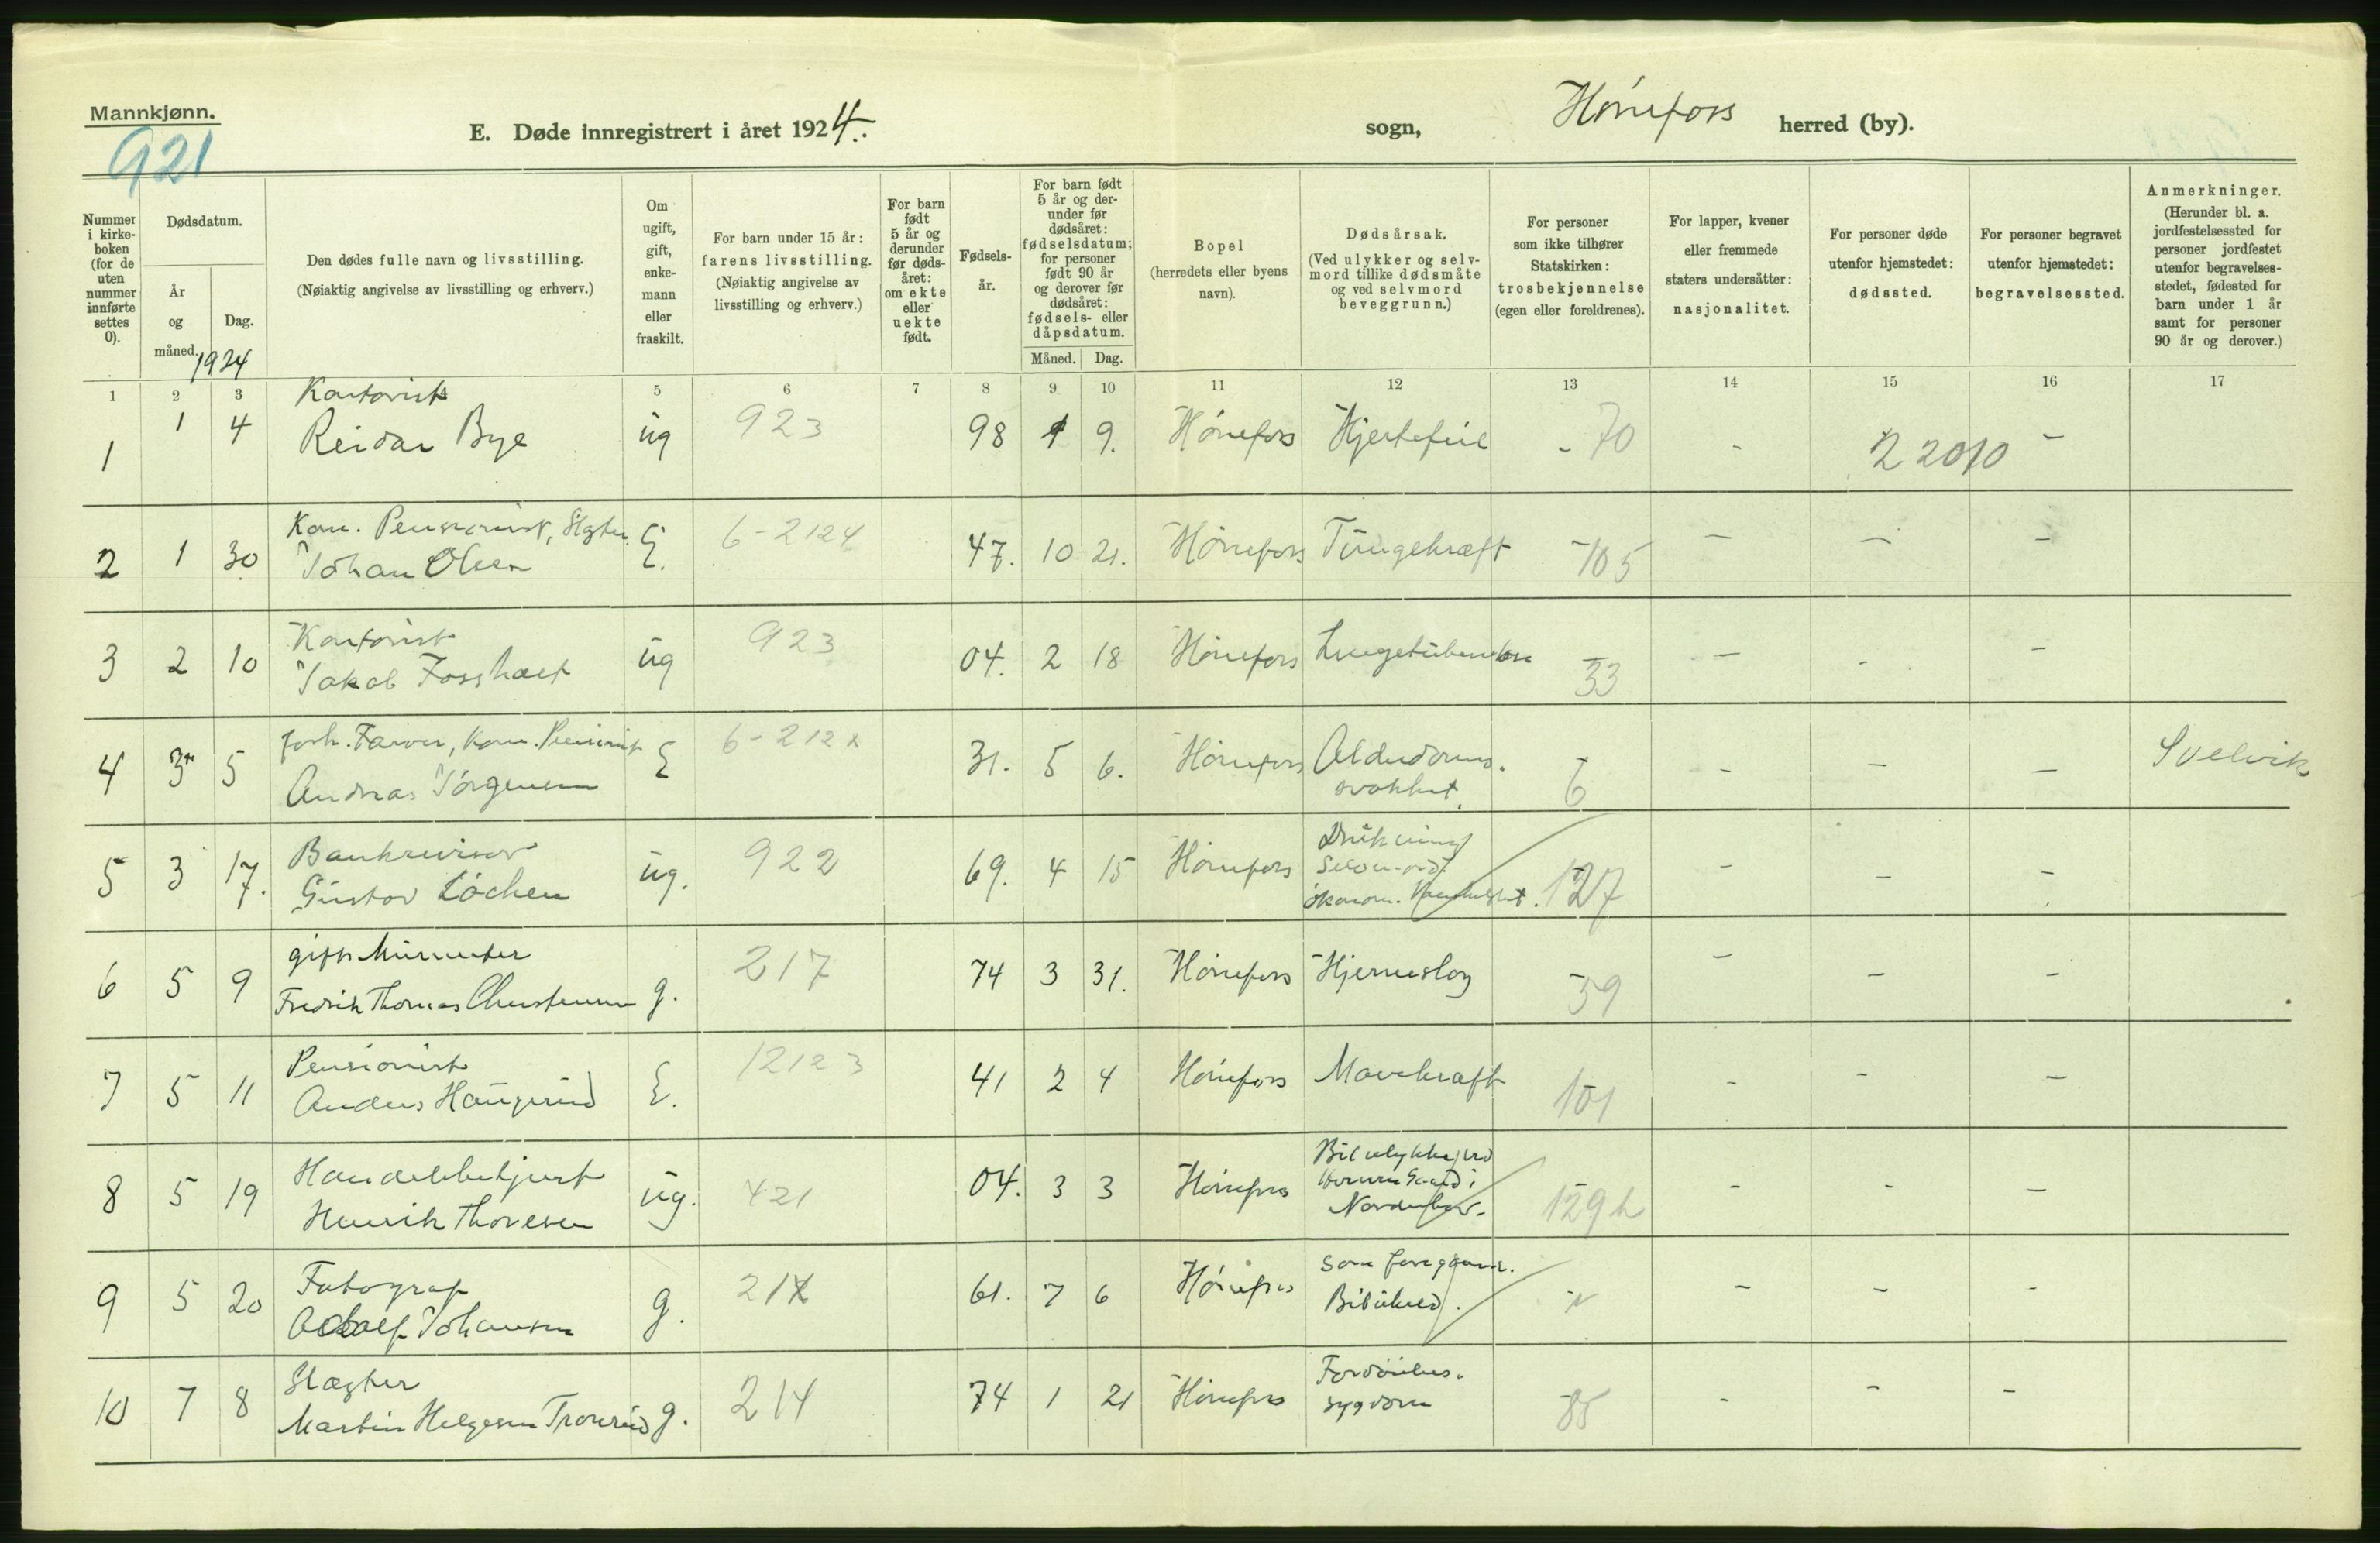 Mannkjønn.
921
E. Døde innregistrert i året 1924.
sogn,
Hønefoss herred (by).
Nummer i kirke-boken (for de uten nummer innførte settes 0).
Dødsdatum.
År og måned.
Dag.
1924
Den dødes fulle navn og livsstilling.
(Nøiaktig angivelse av livsstilling og erhverv.)
Om ugift, gift, enke-mann eller fraskilt.
For barn under 15 år:
farens livsstilling.
(Nøiaktig angivelse av livsstilling og erhverv.)
For barn født 5 år og derunder før døds-året: om ekte eller uekte født.
Fødsels-år.
For barn født 5 år og der-under før dødsåret: fødselsdatum; for personer født 90 år og derover før dødsåret: fødsels- eller dåpsdatum.
Måned. Dag.
Bopel
(herredets eller byens navn).
Dødsårsak.
(Ved ulykker og selv-mord tillike dødsmåte og ved selvmord beveggrunn.)
For personer som ikke tilhører Statskirken: trosbekjennelse (egen eller foreldrenes).
For lapper, kvener eller fremmede staters undersåtter: nasjonalitet.
For personer døde utenfor hjemstedet: dødssted.
For personer begravet utenfor hjemstedet: begravelsessted.
Anmerkninger.
(Herunder bl. a. jordfestelsessted for personer jordfestet utenfor begravelses-stedet, fødested for barn under 1 år samt for personer 90 år og derover.)
1 2 3 5 6 7 8 9 10 11 12 13 14 15 16 17
Kontorist
1 1 4 Reidar Bye ug 923 98 1 9. Hønefoss Hjertefeil - 70 - 22010 -
Kom. Pensionist, Slgter
2 1 30 Johan Olsen E. 6-2124 47. 10 21. Hønefoss Tungekræft - 105 - - -
Kontorist
3 2 10 Jakob Fossholt ug 923 04. 2 18 Hønefoss Lungetuberkulose - 33 - - -
forh. Farver, kom. Pensionist
4 3 5 Andreas Jørgensen E 6-212x 31. 5 6. Hønefoss Alderdoms-
svakhet. - 6 - - - Svelvik
Bankrevisor
5 3 17. Gustav Løchen ug. 922 69. 4 15 Hønefoss Drukning
Selvmord.
økonom. Vanskelighet. 127 - - -
gift Murmester
6 5 9 Fredrik Thomas Christensen g. 217 74 3 31. Hønefoss Hjerneslag - 59 - - -
Pensionist
7 5 11 Anders Haugerud E. 12123 41 2 4 Hønefoss Mavekræft 101 - - -
Handelsbetjent
8 5 19 Henrik Thoresen ug. 421 04. 3 3 Hønefoss Bilulykke ved
i
Norderhov. 129h - - -
Fotograf
9 5 20 Adolf Johansen g. 21x 61. 7 6 Hønefoss Som foregaaende.
Biluheld. - - -
Slagter
10 7 8 Martin Helgesen Tronrud g. 214 74 1 21 Hønefoss Fordøielses-
sygdom 85 - - -